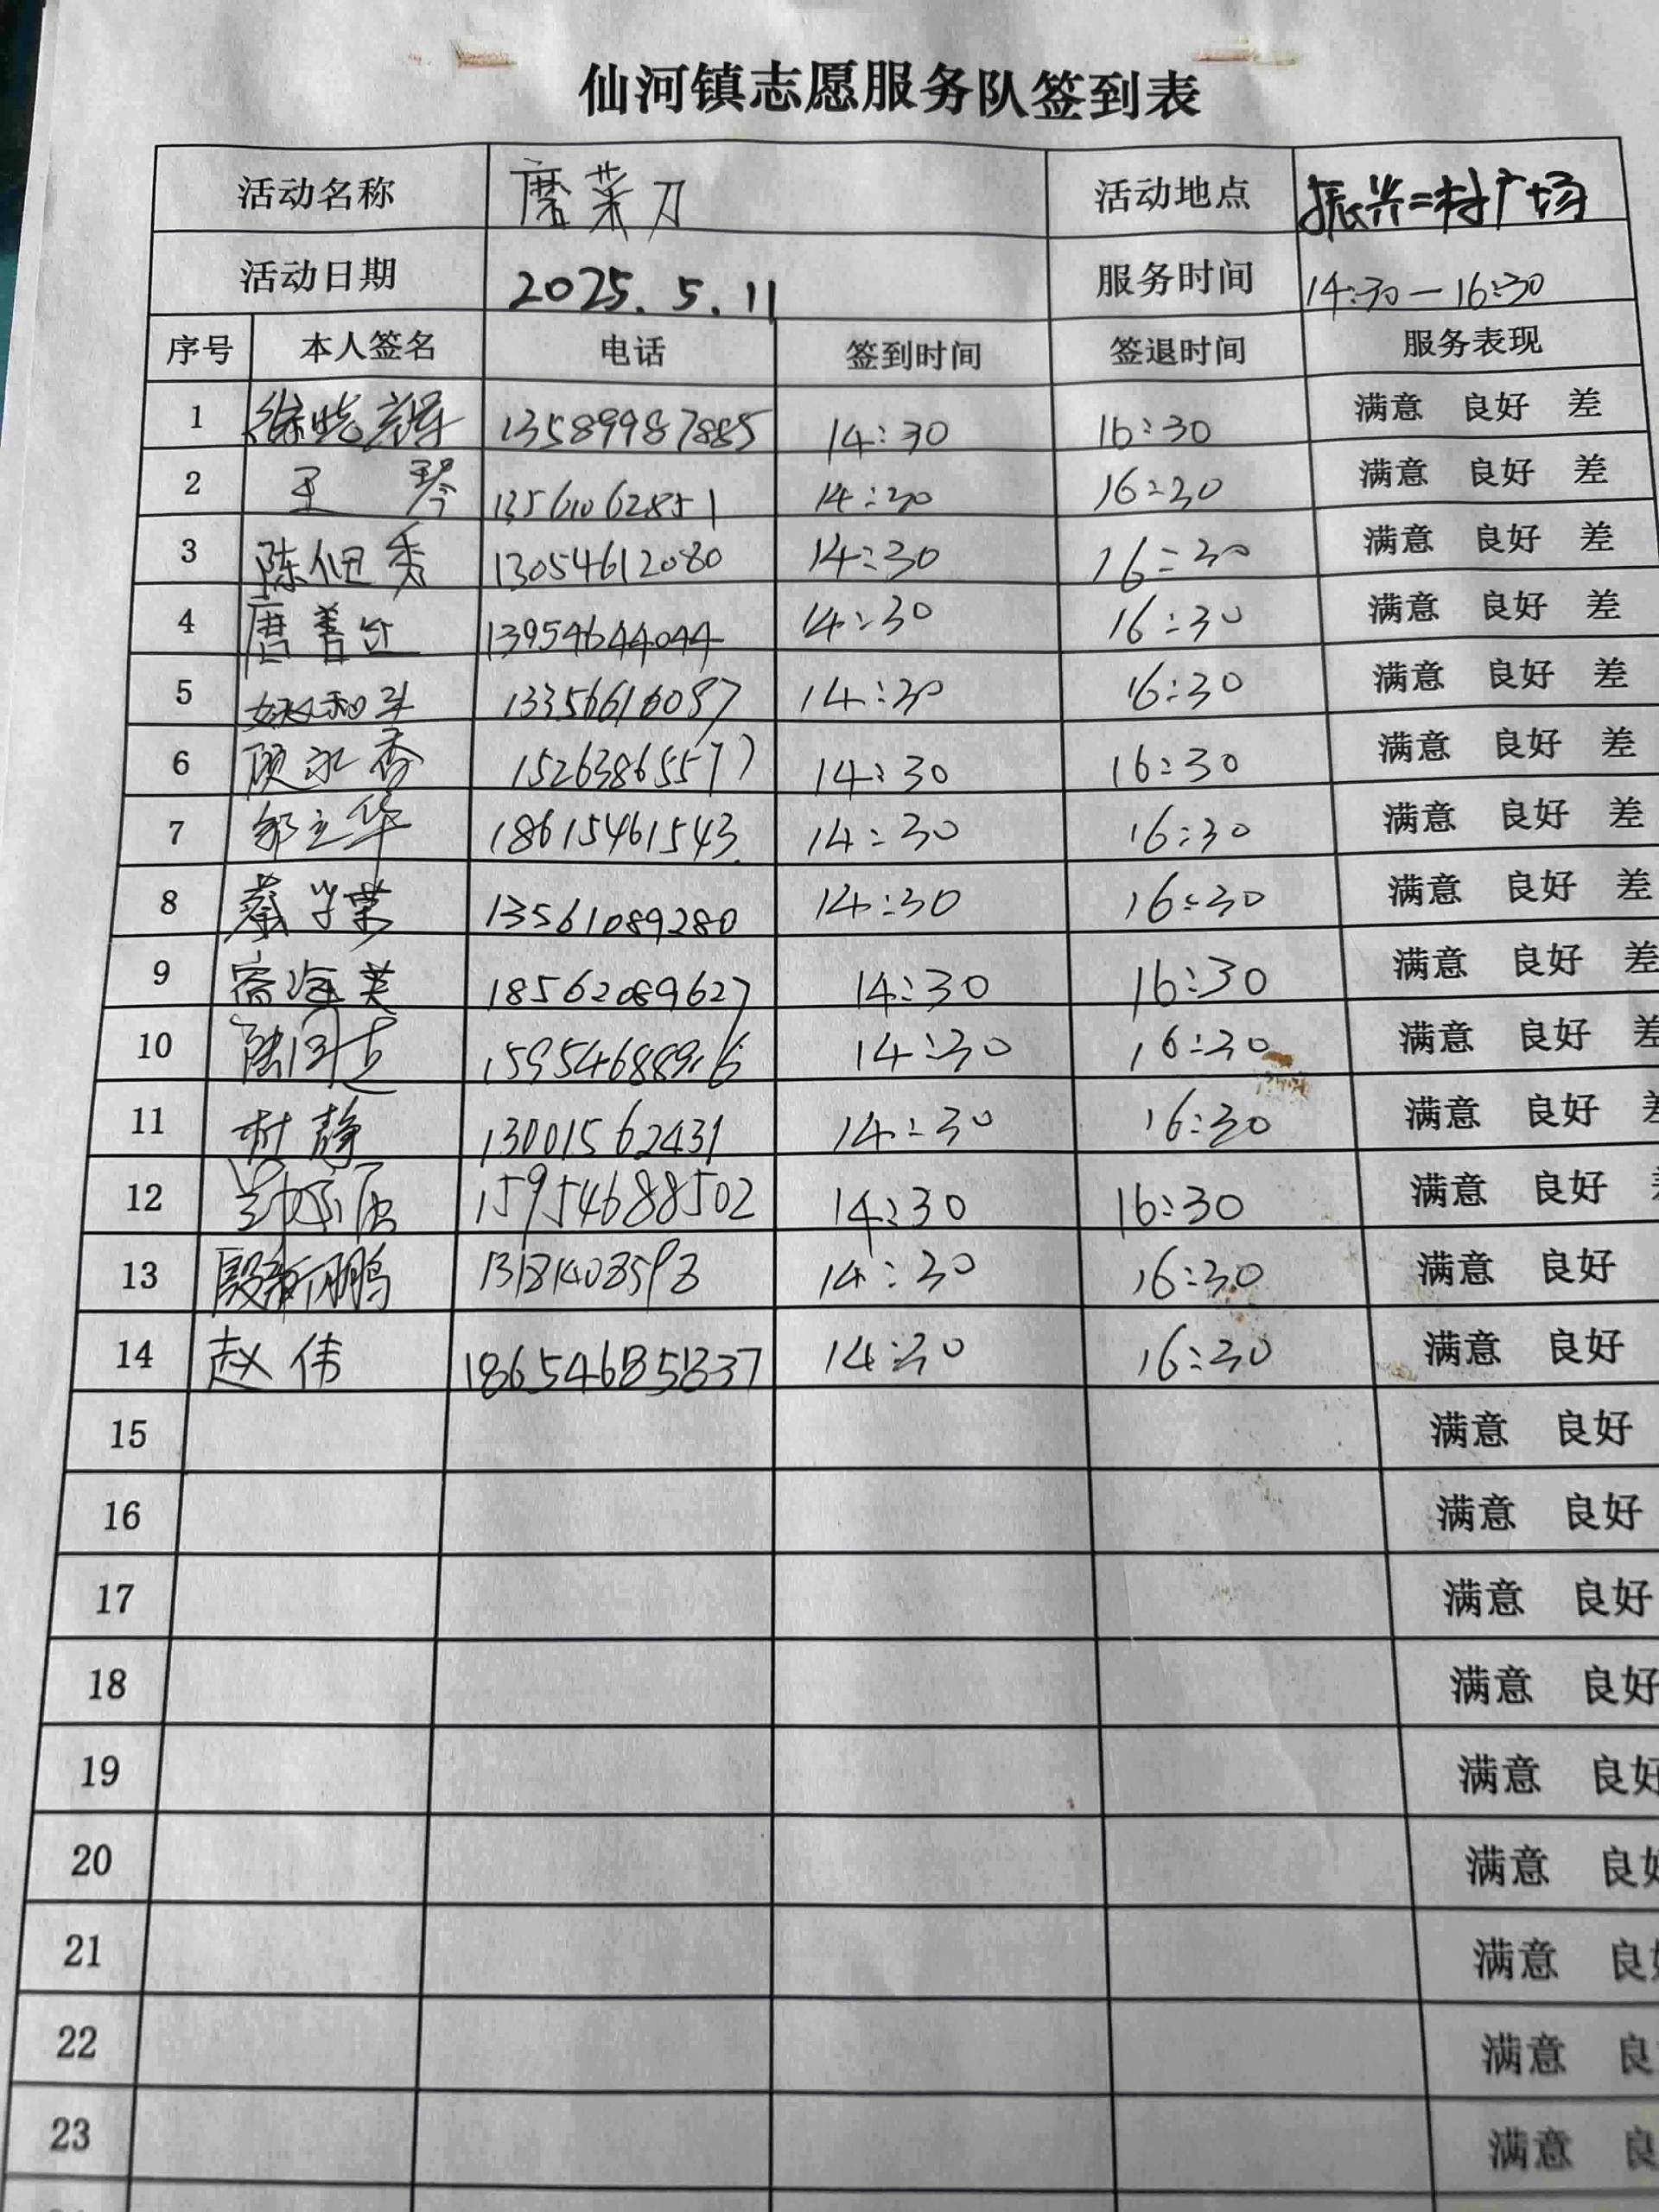 仙河镇志愿服务队签到表
活动名称 磨菜刀 活动地点 振兴二村广场
活动日期 2025.5.11 服务时间 14:30—16:30
序号 本人签名 电话 签到时间 签退时间 服务表现
1 徐晓 13589987885 14:30 16:30 满意 良好 差
2 王琴 13561062851 14:30 16:30 满意 良好 差
3 陈佃秀 13054612080 14:30 16:30 满意 良好 差
4 唐善 13954644044 14:30 16:30 满意 良好 差
5 姚和 13356616087 14:30 16:30 满意 良好 差
6 顾永香 15263865577 14:30 16:30 满意 良好 差
7 邹立华 18615461543 14:30 16:30 满意 良好 差
8 蔡学荣 13561089280 14:30 16:30 满意 良好 差
9 海英 18562089627 14:30 16:30 满意 良好 差
10 14:30 16:30 满意 良好 差
11 杜静 13001562431 14:30 16:30 满意 良好 差
12 15954688502 14:30 16:30 满意 良好
13 殷新鹏 14:30 16:30 满意 良好
14 赵伟 14:30 16:30 满意 良好
15 满意 良好
16 满意 良好
17 满意 良好
18 满意 良好
19 满意 良好
20 满意 良好
21 满意 良好
22 满意 良
23 满意 良